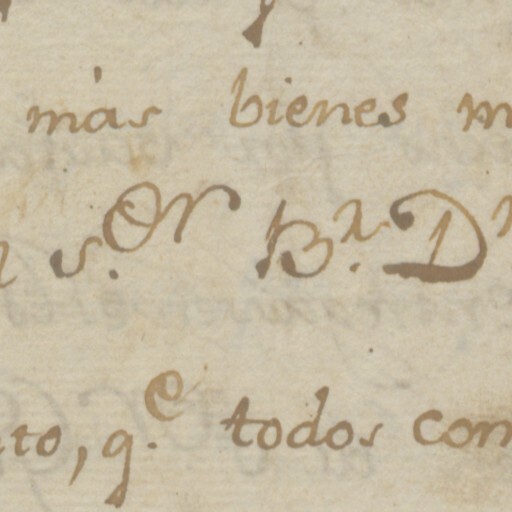 más bienes
s.or Br. D
to, q.e todos com